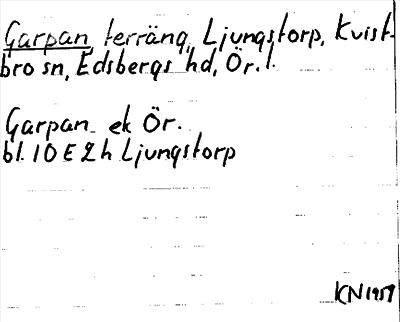 Garpan, terräng, Ljungstorp, Kvist-
bro sn, Edsbergs hd, Ör. l.
Garpan ek Ör.
bl. 10 E 2 h Ljungstorp
KN 1959